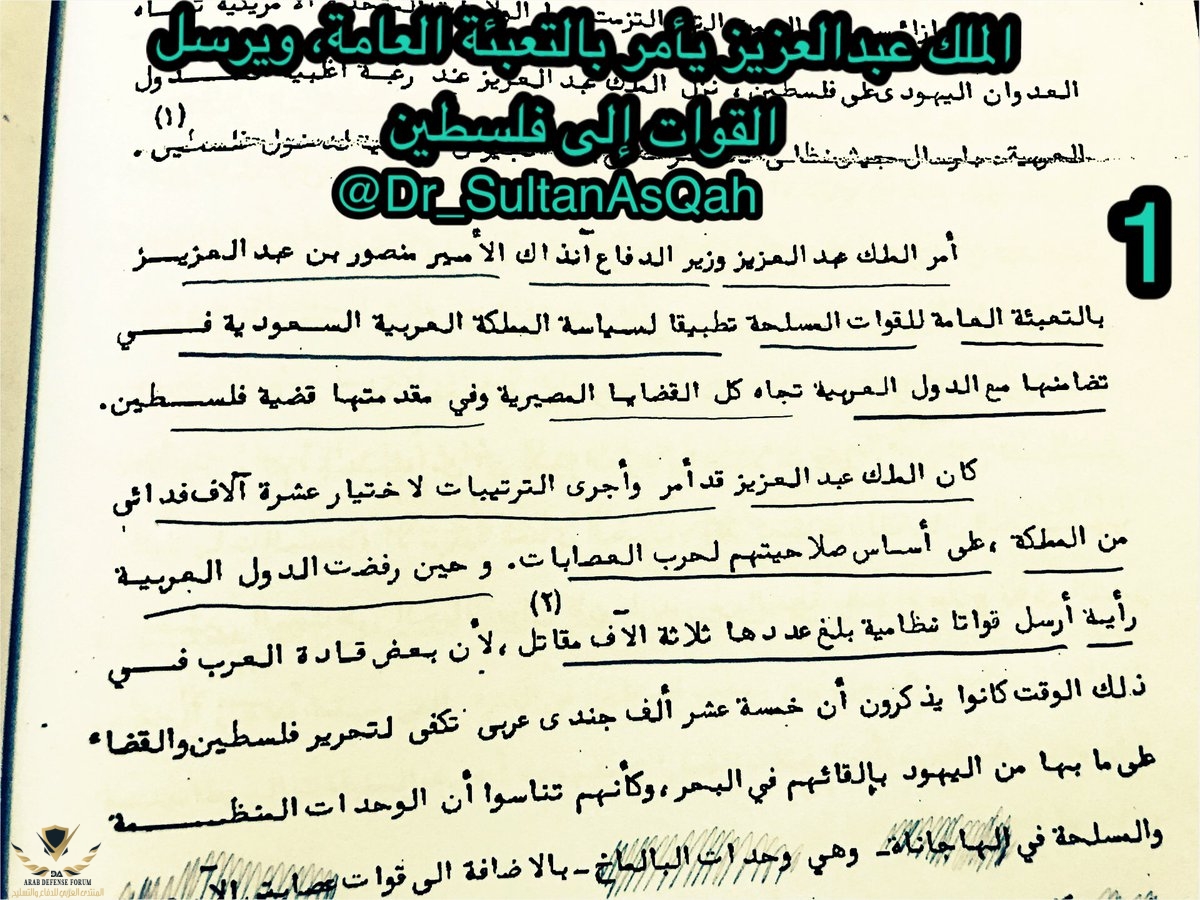 الملك عبدالعزيز يأمر بالتعبئة العامة، ويرسل
العدوان اليهودى على فلسطين، نزل الملك عبد العزيز عند رغبة أغلبية الدول
القوات إلى فلسطين
(١)
العربية بارسال جيش نظامى لدخول فلسطين.
@Dr_SultanAsQah
1
أمر الملك عبد العزيز وزير الدفاع آنذاك الأمير منصور بن عبد العزيز
بالتعبئة العامة للقوات المسلحة تطبيقا لسياسة المملكة العربية السعودية في
تضامنها مع الدول العربية تجاه كل القضايا المصيرية وفي مقدمتها قضية فلسطين.
كان الملك عبد العزيز قد أمر وأجرى الترتيبات لاختيار عشرة آلاف فدائى
من المملكة ، على أساس صلاحيتهم لحرب العصابات. وحين رفضت الدول العربية
رأيه أرسل قواتا نظامية بلغ عددها ثلاثة آلاف مقاتل (٢) ، لأن بعض قادة العرب في
ذلك الوقت كانوا يذكرون أن خمسة عشر ألف جندى عربى تكفى لتحرير فلسطين والقضاء
على ما بها من اليهود بإلقائهم في البحر ، وكأنهم تناسوا أن الوحدات المنظمة
والمسلحة في الهاجاناة ـ وهي وحدات البالماخ ـ بالاضافة الى قوات عصابتى
DA
ARAB DEFENSE FORUM
المنتدى العربي للدفاع والتسليح